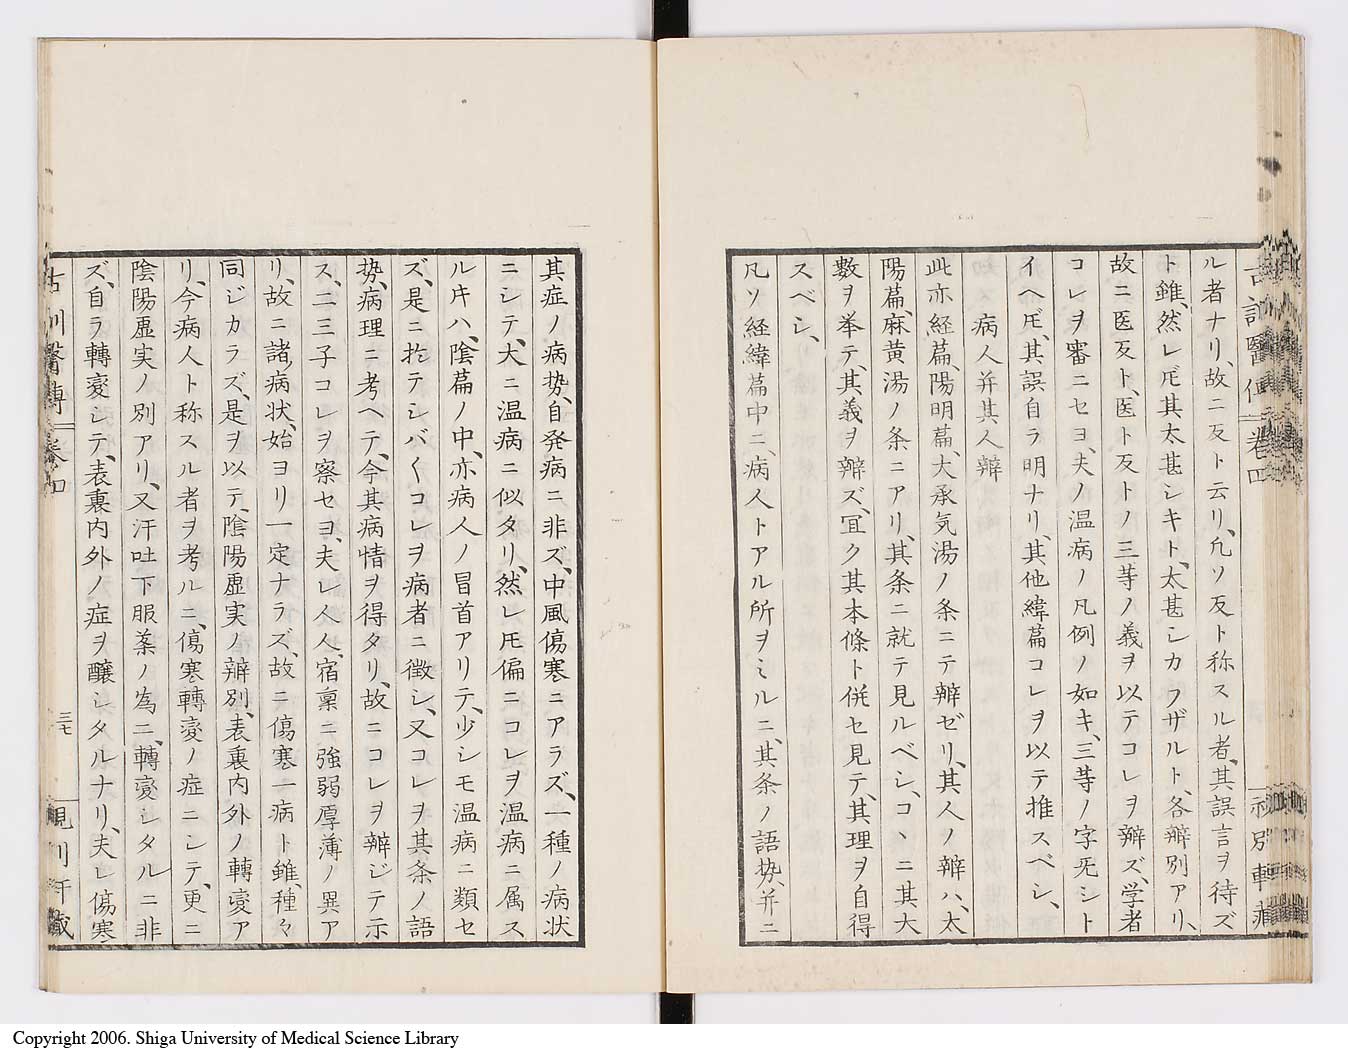 ル者ナリ、故ニ反ト云リ、凡ソ反ト称スル者、其誤言ヲ待ズ
ト雖、然レ𪜈其太甚シキト、太甚シカラザルト、各辨別アリ、
故ニ医反ト、医ト反トノ三等ノ義ヲ以テコレヲ辨ズ、学者
コレヲ審ニセヨ、夫ノ温病ノ凡例ノ如キ、三等ノ字旡シト
イヘ𪜈、其誤自ラ明ナリ、其他緯篇コレヲ以テ推スベシ、
病人并其人辨
此亦経篇、陽明篇、大承気湯ノ条ニテ辨ゼリ、其人ノ辨ハ、太
陽篇、麻黄湯ノ条ニアリ、其条ニ就テ見ルベシ、コヽニ其大
數ヲ挙テ、其義ヲ辨ズ、冝ク其本條ト併セ見テ、其理ヲ自得
スベシ、
凡ソ経緯篇中ニ、病人トアル所ヲミルニ、其条ノ語勢、并ニ
其症ノ病勢、自発病ニ非ズ、中風傷寒ニアラズ、一種ノ病状
ニシテ、大ニ温病ニ似タリ、然レ𪜈偏ニコレヲ温病ニ属ス
ル片ハ、陰篇ノ中、亦病人ノ冒首アリテ、少シモ温病ニ類セ
ズ、是ニ於テシバ〱コレヲ病者ニ徴シ、又コレヲ其条ノ語
勢、病理ニ考ヘテ、今其病情ヲ得タリ、故ニコレヲ辨ジテ示
ス、二三子コレヲ察セヨ、夫レ人人、宿稟ニ強弱厚薄ノ異ア
リ、故ニ諸病状、始ヨリ一定ナラズ、故ニ傷寒一病ト雖、種々
同ジカラズ、是ヲ以テ、陰陽虚実ノ辨別、表裏内外ノ轉変ア
リ、今病人ト称スル者ヲ考ルニ、傷寒轉変ノ症ニシテ、更ニ
陰陽虚実ノ別アリ、又汗吐下服薬ノ為ニ、轉変シタルニ非
ズ、自ラ轉変シテ、表裏内外ノ症ヲ醸シタルナリ、夫レ傷寒
古訓醫傳
卷四
三七